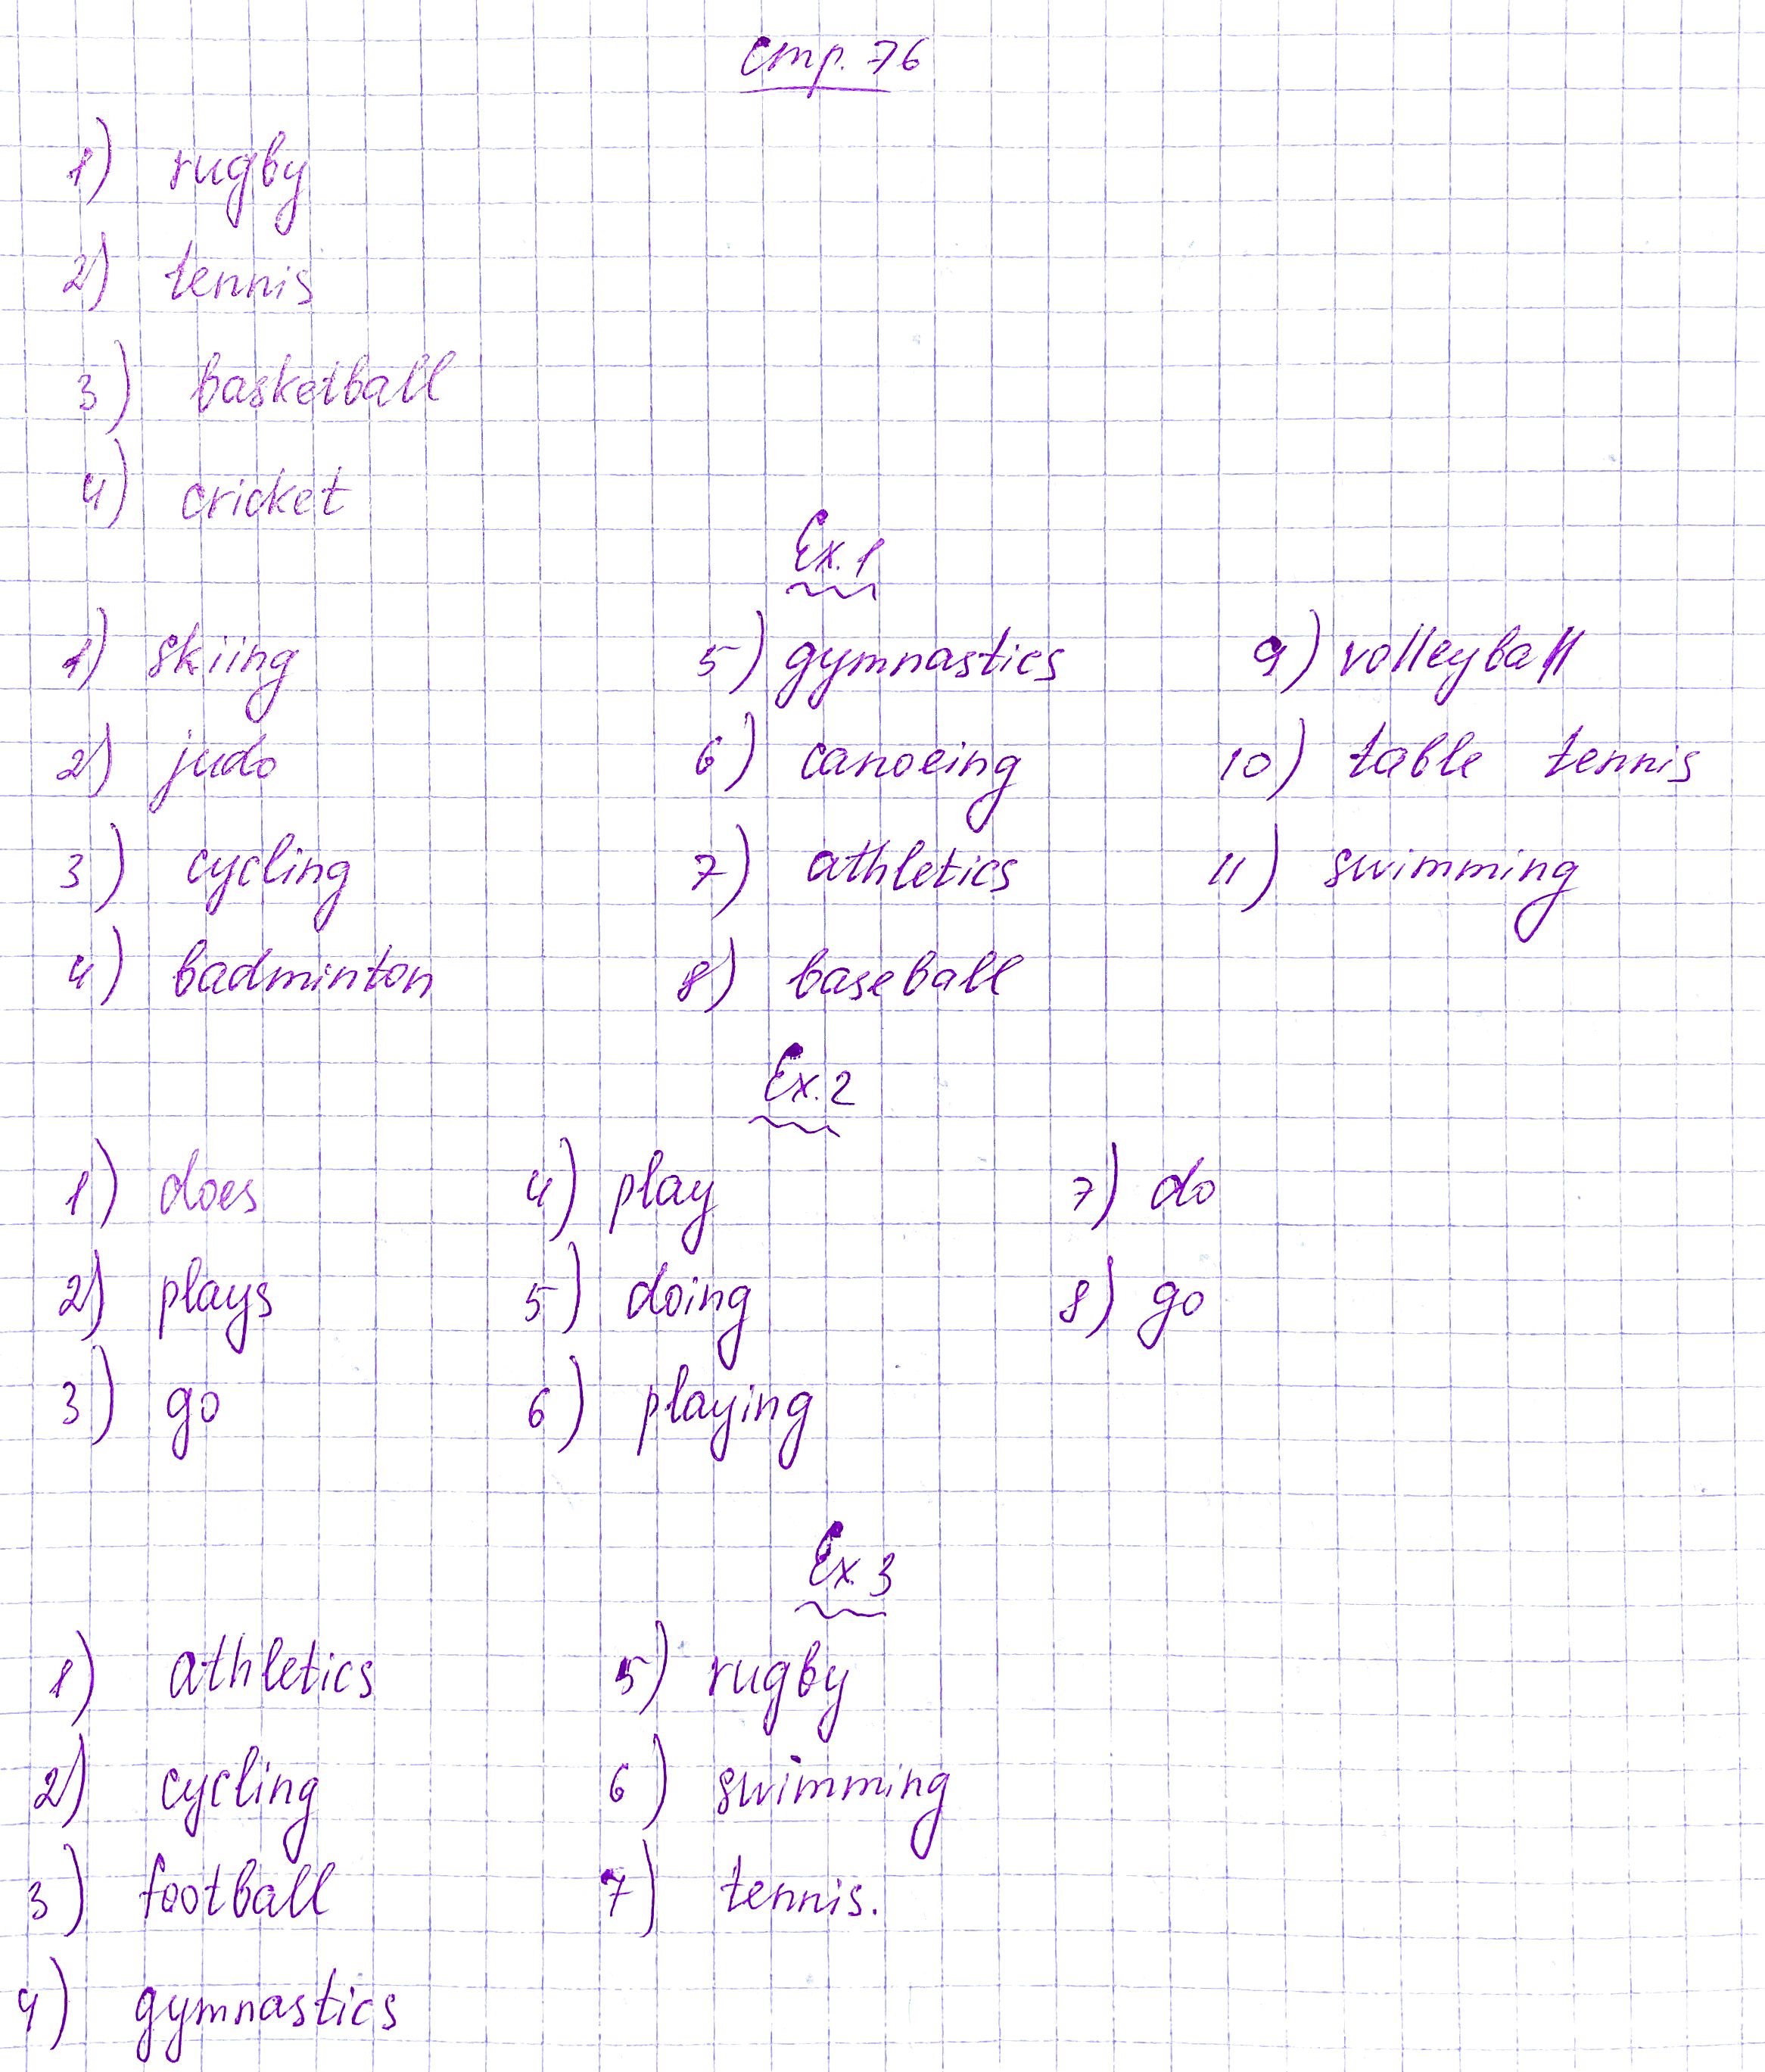 стр. 76
1) rugby
2) tennis
3) basketball
4) cricket
Ex. 1
1) skiing 5) gymnastics 9) volleyball
2) judo 6) canoeing 10) table tennis
3) cycling 7) athletics 11) swimming
4) badminton 8) baseball
Ex. 2
1) does 4) play 7) do
2) plays 5) doing 8) go
3) go 6) playing
Ex. 3
1) athletics 5) rugby
2) cycling 6) swimming
3) football 7) tennis.
4) gymnastics